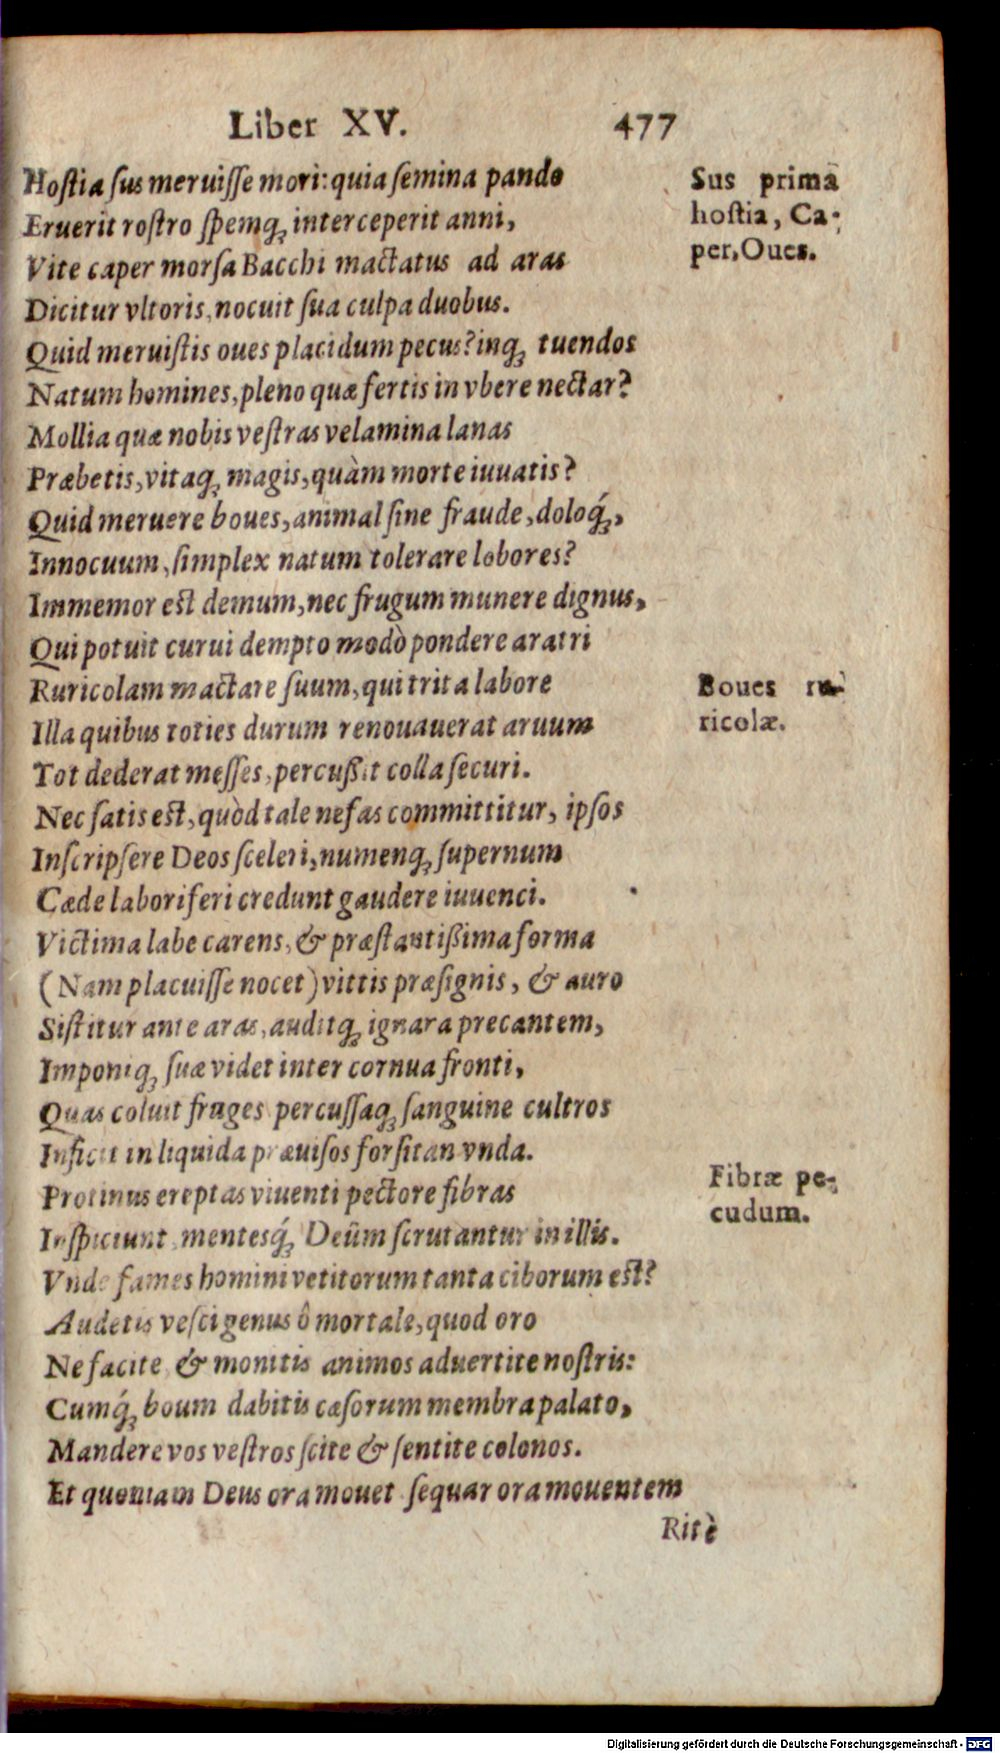 Liber XV. 477
Hostia sus meruisse mori: quia semina pando
Eruerit rostro spemq; interceperit anni,
Vite caper morsa Bacchi mactatus ad aras
Dicitur vltoris, nocuit sua culpa duobus.
Quid meruistis oues placidum pecus? inq; tuendos
Natum homines, pleno quæ fertis in vbere nectar?
Mollia quæ nobis vestras velamina lanas
Præbetis, vitaq; magis, quàm morte iuuatis?
Quid meruere boues, animal sine fraude, doloq́;,
Innocuum, simplex natum tolerare lobores?
Immemor est demum, nec frugum munere dignus,
Qui potuit curui dempto modò pondere aratri
Ruricolam mactare suum, qui trita labore
Illa quibus toties durum renouauerat aruum
Tot dederat messes, percußit colla securi.
Nec satis est, quòd tale nefas committitur, ipsos
Inscripsere Deos sceleri, numenq; supernum
Cæde laboriferi credunt gaudere iuuenci.
Victima labe carens, & præstantißima forma
(Nam placuisse nocet) vittis præsignis, & auro
Sistitur ante aras, auditq; ignara precantem,
Imponiq; suæ videt inter cornua fronti,
Quas coluit fruges percussaq; sanguine cultros
Inficit in liquida præuisos forsitan vnda.
Protinus ereptas viuenti pectore fibras
Inspiciunt, mentesq́; Deûm scrutantur in illis.
Vnde fames homini vetitorum tanta ciborum est?
Audetis vesci genus ô mortale, quod oro
Ne facite & monitis animos aduertite nostris:
Cumq́; boum dabitis cæsorum membra palato,
Mandere vos vestros scite & sentite colonos.
Et quoniam Deus ora mouet sequar ora mouentem
Ritè
Sus prima
hostia, Ca-
per, Oues.
Boues ru-
ricolæ.
Fibræ pe-
cudum.
Digitalisierung gefördert durch die Deutsche Forschungsgemeinschaft - DFG